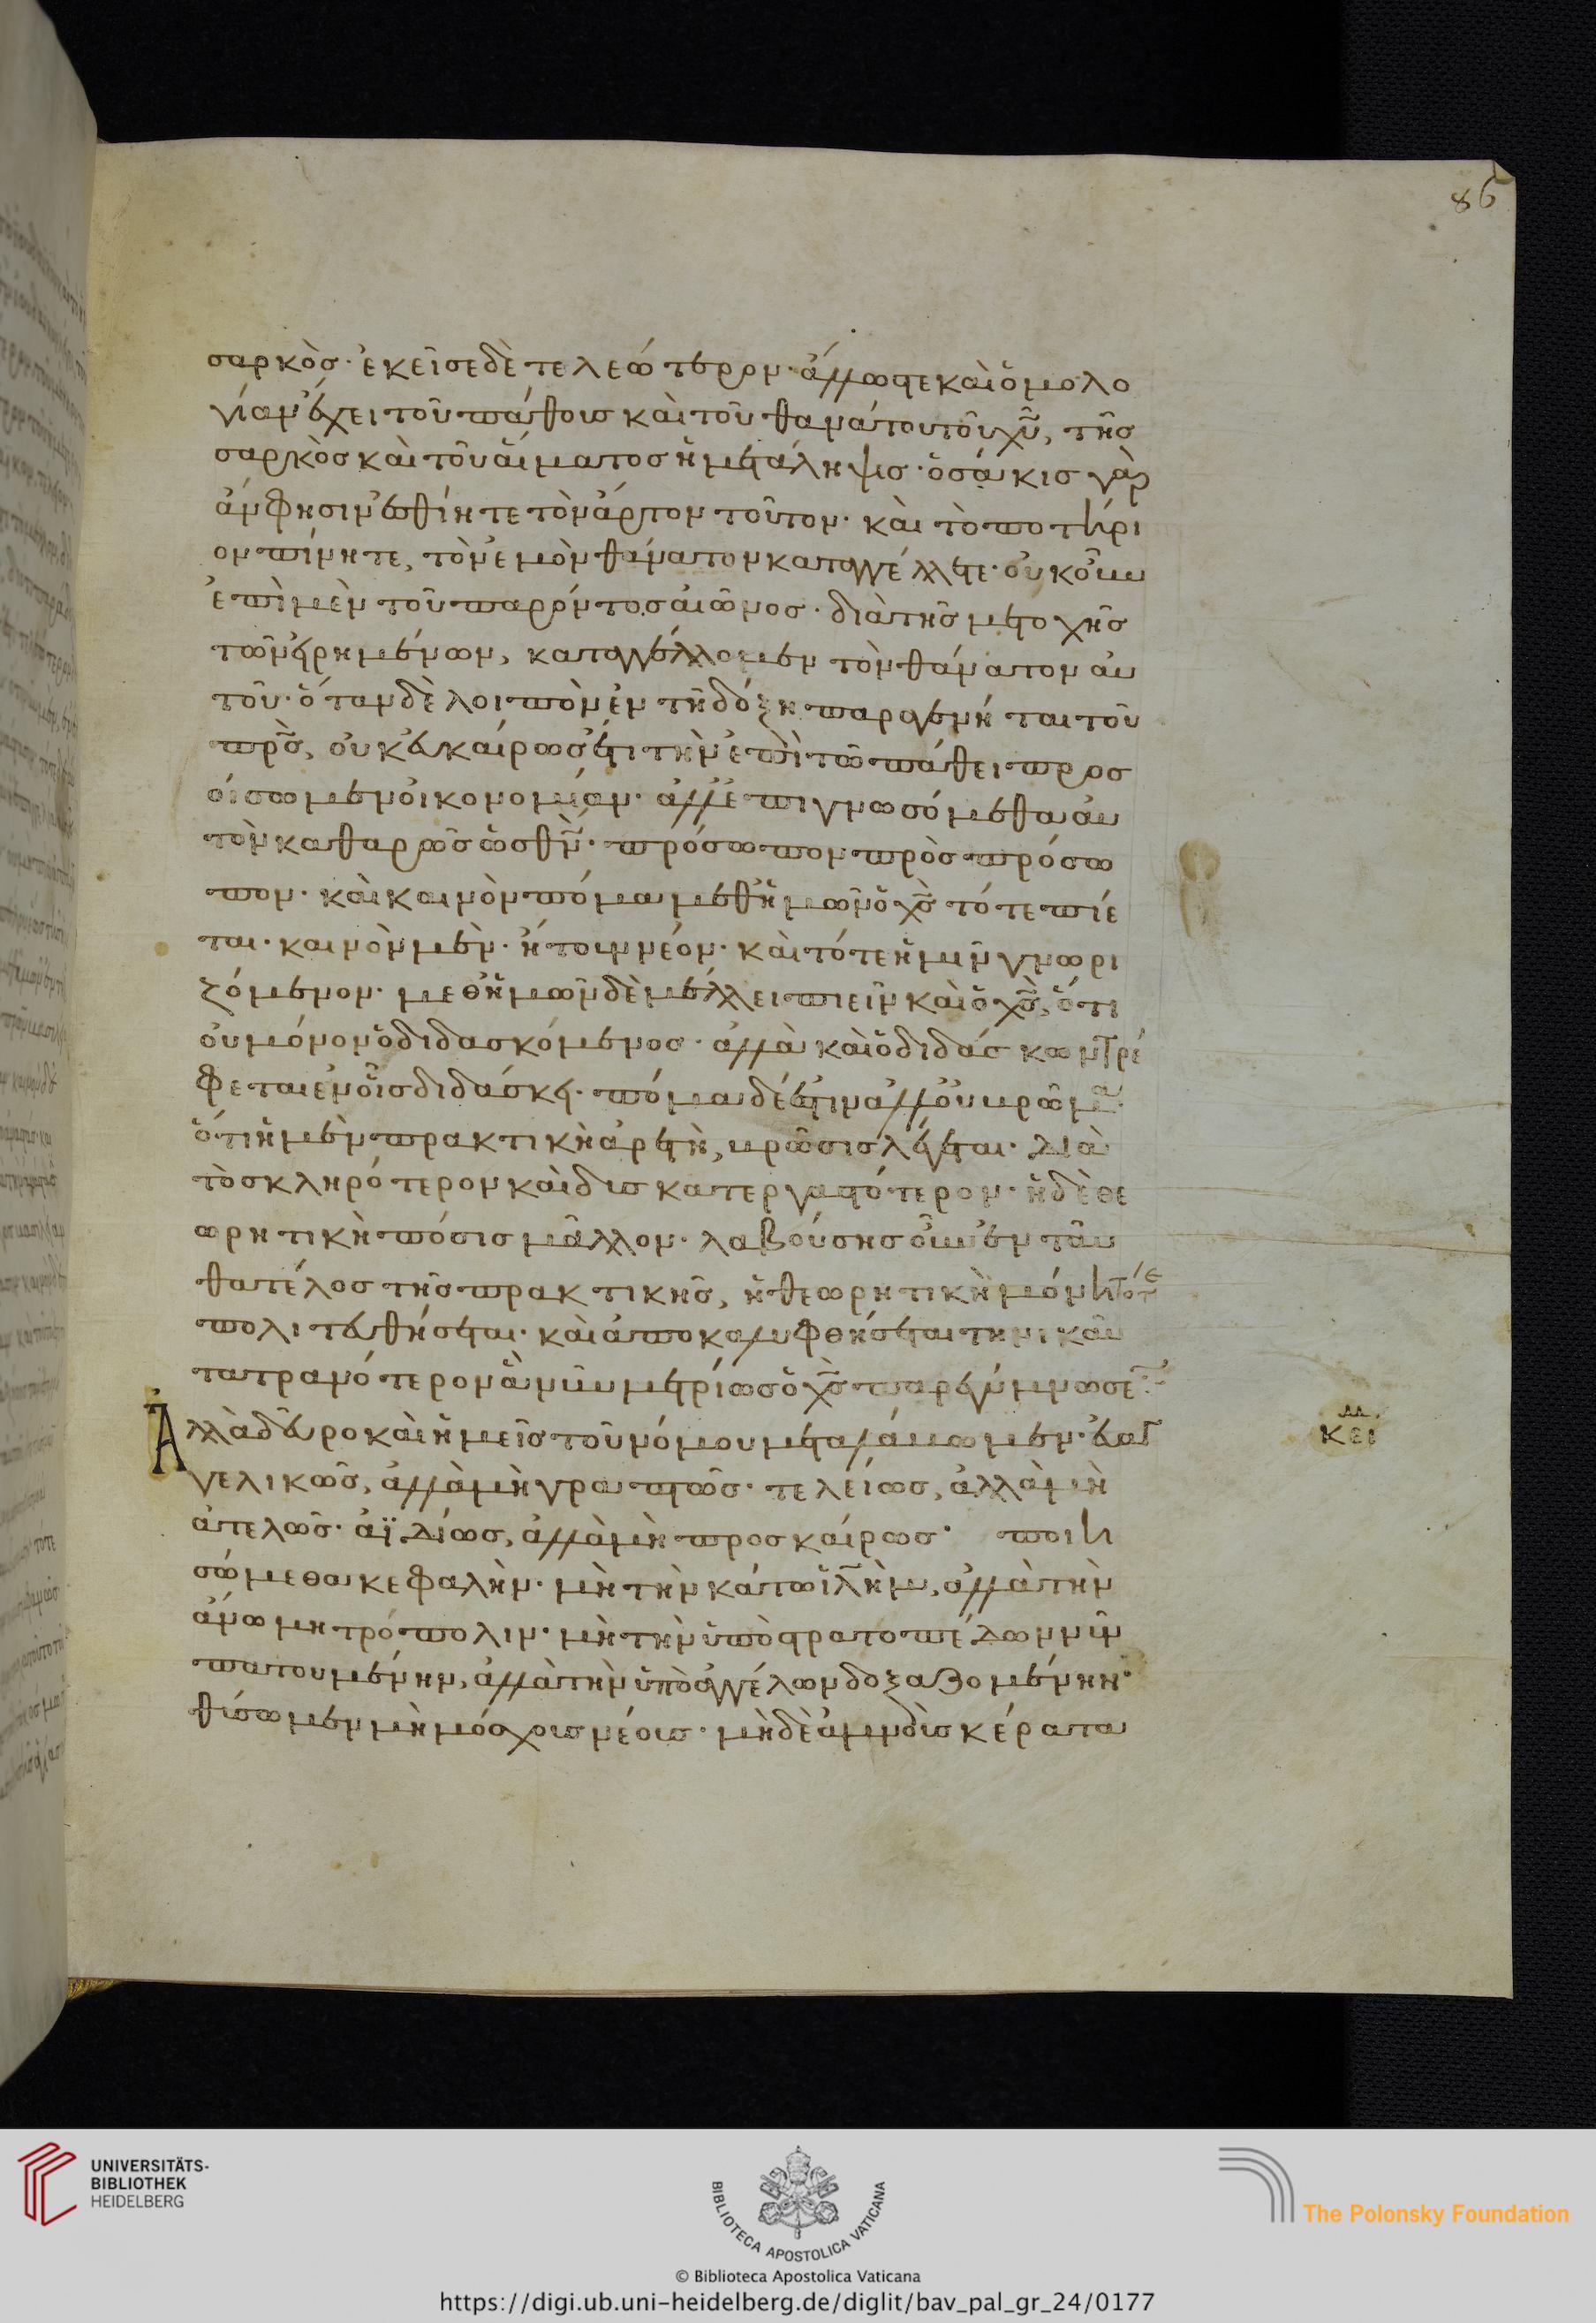 86
σαρκὸς· ἐκεῖσε δὲ τελεώτερον· ἄλλως τε καὶ ὁμολο
γίαν ἔχει τοῦ πάθους καὶ τοῦ θανάτου τοῦ χυ̅, τῆς
σαρκὸς καὶ τοῦ αἵματος ἡ μετάληψις· ὁσάκις γὰρ
ἄν φησιν ἐσθίητε τὸν ἄρτον τοῦτον· καὶ τὸ ποτήρι
ον πίνητε, τὸν ἐμὸν θάνατον καταγγέλλετε· οὐκοῦν
ἐπὶ μὲν τοῦ παρόντος αἰῶνος· διὰ τῆς μετοχῆς
τῶν εἰρημένων, καταγγέλλομεν τὸν θάνατον αὐ
τοῦ· ὅταν δὲ λοιπὸν ἐν τῇ δόξῃ παραγένηται τοῦ
πρ̅ς, οὐκ εὐκαίρως ἔτι τὴν ἐπὶ τῶ πάθει προσ
οίσωμεν οἰκονομίαν· ἀλλ' ἐπιγνωσόμεθα αὐ
τὸν καθαρῶς ὡς θν̅· πρόσωπον πρὸς πρόσω
πον· καὶ καινὸν πόμα μεθ' ἡμῶν ὁ χς̅ τότε πίε
ται· καινὸν μὲν· ἤτοι νέον· καὶ τότε ἡμῖν γνωρι
ζόμενον· μεθ' ἡμῶν δὲ μέλλει πιεῖν καὶ ὁ χς̅, ὅτι
οὐ μόνον ὁ διδασκόμενος· ἀλλὰ καὶ ὁ διδάσκων τρέ
φεται ἐν οἷς διδάσκει· πόμα δέ ἐστιν ἀλλ' οὐ βρῶμα·
ὅτι ἡ μὲν πρακτικὴ ἀρετὴ, βρῶσις λέγεται· διὰ
τὸ σκληρότερον καὶ δυσκατεργαστότερον· ἡ δὲ θε
ωρητικὴ πόσις μᾶλλον· λαβούσης οὖν ἐνταῦ
θα τέλος τῆς πρακτικῆς, ἡ θεωρητικὴ μόνη τότε
πολιτευθήσεται· καὶ ἀποκαλυφθήσεται τηνικαῦ
τα τρανότερον ἃ νῦν μετρίως ὁ χς̅ παρεγύμνωσε
Ἀλλὰ δεῦρο καὶ ἡμεῖς τοῦ νόμου μεταλάβωμεν· εὐαγ
κει
γελικῶς, ἀλλὰ μὴ γραπτῶς· τελείως, ἀλλὰ μὴ
ἀτελῶς· ἀϊδίως, ἀλλὰ μὴ προσκαίρως· ποιη
σώμεθα κεφαλὴν· μὴ τὴν κάτω ἰλὴμ, ἀλλὰ τὴν
ἄνω μητρόπολιν· μὴ τὴν ὑπὸ στρατοπέδων νῦν
πατουμένην, ἀλλὰ τὴν ὑπὸ ἀγγέλων δοξαζομένην·
θύσωμεν μὴ μόσχους νέους· μὴδὲ ἀμνοὺς κέρατα
UNIVERSITÄTS-
BIBLIOTHEK
HEIDELBERG
BIBLIOTECA APOSTOLICA VATICANA
The Polonsky Foundation
© Biblioteca Apostolica Vaticana
https://digi.ub.uni-heidelberg.de/diglit/bav_pal_gr_24/0177